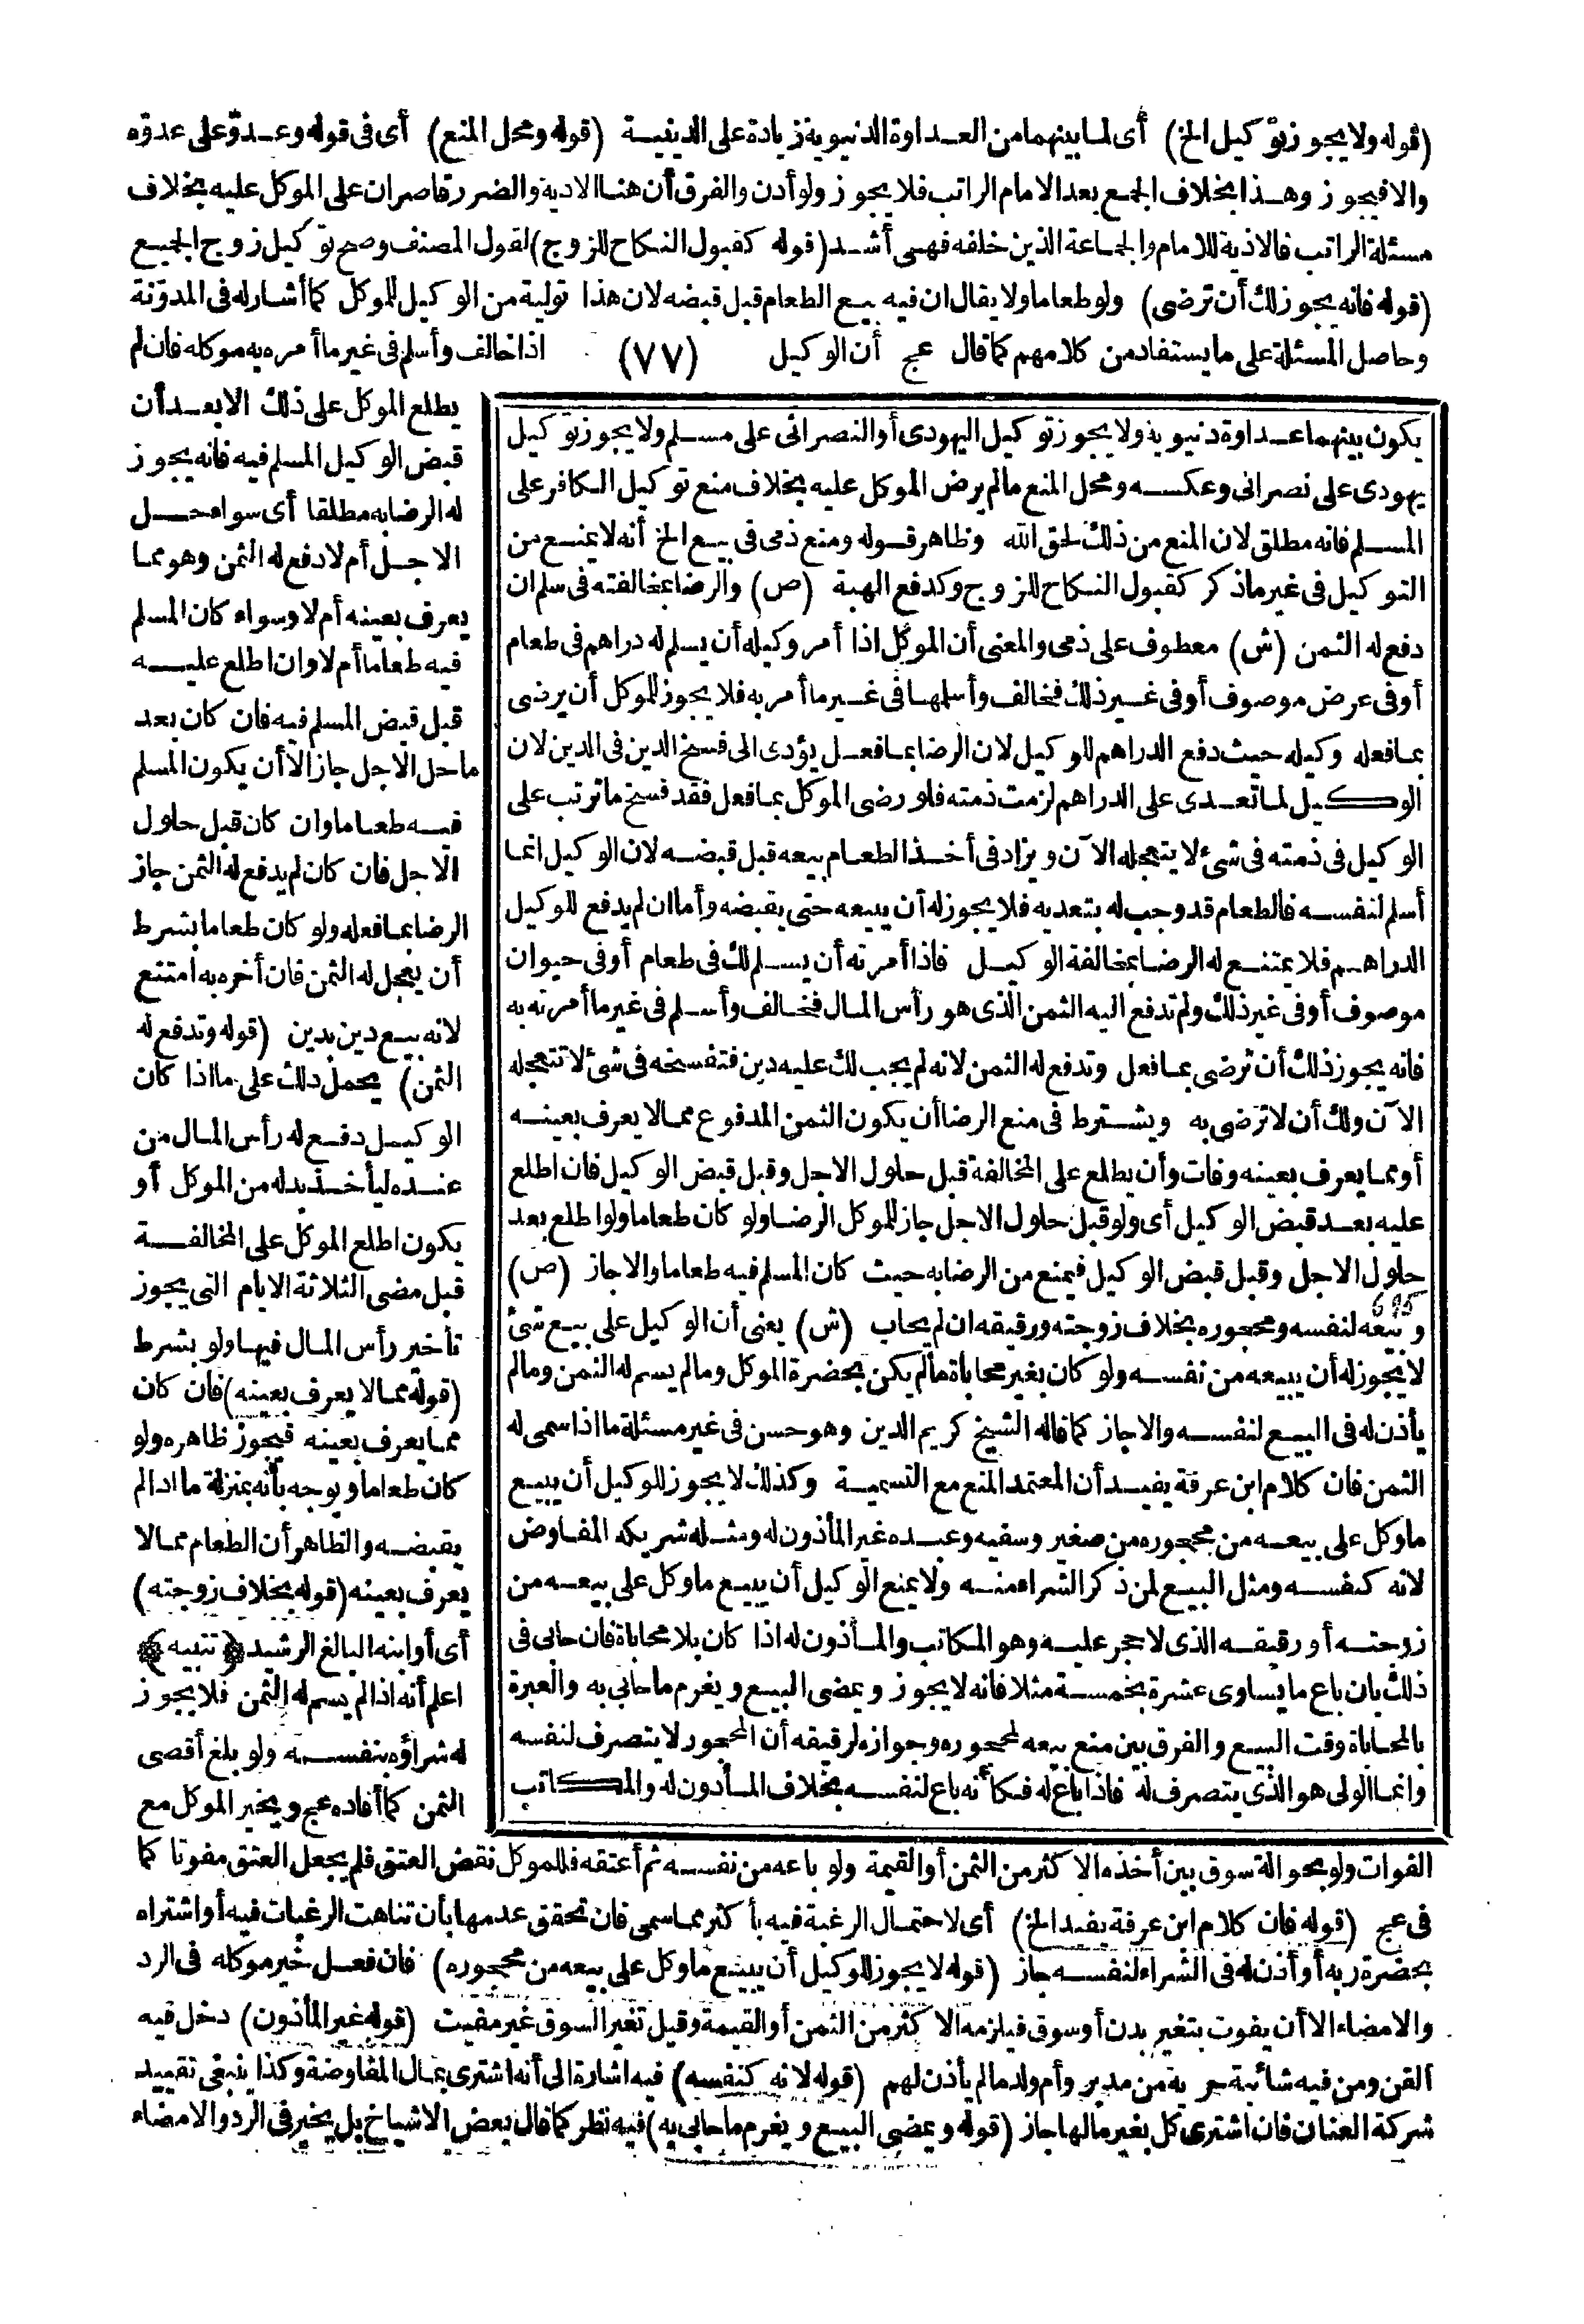 (قوله ولا يجوز توكيل الخ) أى لما بينهما من العداوة الدنيوية زيادة على الدينية (قوله ومحل المنع) أى فى قوله وعدوّ على عدوّه
والا فيجوز وهذا بخلاف الجمع بعد الامام الراتب فلا يجوز ولو أذن والفرق أن هنا الاذية والضرر قاصران على الموكل عليه بخلاف
مسئلة الراتب فالاذية للامام والجماعة الذين خلفه فهى أشد (قوله كقبول النكاح للزوج) لقول المصنف وصح توكيل زوج الجميع
(قوله فانه يجوز لك أن ترضى) ولو طعاما ولا يقال ان فيه بيع الطعام قبل قبضه لان هذا تولية من الوكيل للموكل كما أشار له فى المدوّنة
وحاصل المسئلة على ما يستفاد من كلامهم كما قال عج أن الوكيل (٧٧) اذا خالف وأسلم فى غير ما أمره به موكله فان لم
يطلع الموكل على ذلك الا بعد أن
قبض الوكيل المسلم فيه فانه يجوز
له الرضا به مطلقا أى سواء حل
الاجل أم لا دفع له الثمن وهو مما
يعرف بعينه أم لا وسواء كان المسلم
فيه طعاما أم لا وان اطلع عليه
قبل قبض المسلم فيه فان كان بعد
ما حل الاجل جاز الا أن يكون المسلم
فيه طعاما وان كان قبل حلول
الاجل فان كان لم يدفع له الثمن جاز
الرضا بما فعله ولو كان طعاما بشرط
أن يعجل له الثمن فان أخره به امتنع
لانه بيع دين بدين (قوله وتدفع له
الثمن) يحمل ذلك على ما اذا كان
الوكيل دفع له رأس المال من
عنده ليأخذ بدله من الموكل أو
يكون اطلع الموكل على المخالفة
قبل مضى الثلاثة الايام التى يجوز
تأخير رأس المال فيها ولو بشرط
(قوله مما لا يعرف بعينه) فان كان
مما يعرف بعينه فيجوز ظاهره ولو
كان طعاما ويوجه بأنه بمنزلة ما اذا لم
يقبضه والظاهر أن الطعام مما لا
يعرف بعينه (قوله بخلاف زوجته)
أى أو ابنه البالغ الرشيد ﴿تنبيه﴾
اعلم أنه اذا لم يسم له الثمن فلا يجوز
له شراؤه بنفسه ولو بلغ أقصى
الثمن كما أفاده عج ويخير الموكل مع
يكون بينهما عداوة دنيوية ولا يجوز توكيل اليهودى أو النصرانى على مسلم ولا يجوز توكيل
يهودى على نصرانى وعكسه ومحل المنع ما لم يرض الموكل عليه بخلاف منع توكيل الكافر على
المسلم فانه مطلق لان المنع من ذلك لحق الله وظاهر قوله ومنع ذمى فى بيع الخ أنه لا يمنع من
التوكيل فى غير ما ذكر كقبول النكاح للزوج وكدفع الهبة (ص) والرضا بمخالفته فى سلم ان
دفع له الثمن (ش) معطوف على ذمى والمعنى أن الموكل اذا أمر وكيله أن يسلم له دراهم فى طعام
أو فى عرض موصوف أو فى غير ذلك فخالف وأسلمها فى غير ما أمر به فلا يجوز للموكل أن يرضى
بما فعله وكيله حيث دفع الدراهم للوكيل لان الرضا بما فعل يؤدى الى فسخ الدين فى الدين لان
الوكيل لما تعدى على الدراهم لزمت ذمته فلو رضى الموكل بما فعل فقد فسخ ما ترتب على
الوكيل فى ذمته فى شئ لا يتعجله الآن ويزاد فى أخذ الطعام بيعه قبل قبضه لان الوكيل انما
أسلم لنفسه فالطعام قد وجب له بتعديه فلا يجوز له أن يبيعه حتى يقبضه وأما ان لم يدفع للوكيل
الدراهم فلا يمتنع له الرضا بمخالفة الوكيل فاذا أمرته أن يسلم لك فى طعام أو فى حيوان
موصوف أو فى غير ذلك ولم تدفع اليه الثمن الذى هو رأس المال فخالف وأسلم فى غير ما أمرته به
فانه يجوز ذلك أن ترضى بما فعل وتدفع له الثمن لانه لم يجب لك عليه دين فتفسخه فى شئ لا تتعجله
الآن ولك أن لا ترضى به ويشترط فى منع الرضا أن يكون الثمن المدفوع مما لا يعرف بعينه
أو مما يعرف بعينه وفات وأن يطلع على المخالفة قبل حلول الاجل وقبل قبض الوكيل فان اطلع
عليه بعد قبض الوكيل أى ولو قبل حلول الاجل جاز للموكل الرضا ولو كان طعاما ولو اطلع بعد
حلول الاجل وقبل قبض الوكيل فيمنع من الرضا به حيث كان المسلم فيه طعاما والا جاز (ص)
وبيعه لنفسه ومحجوره بخلاف زوجته ورقيقه ان لم يحاب (ش) يعنى أن الوكيل على بيع شئ
لا يجوز له أن يبيعه من نفسه ولو كان بغير محاباة ما لم يكن بحضرة الموكل وما لم يسم له الثمن وما لم
يأذن له فى البيع لنفسه والا جاز كما قاله الشيخ كريم الدين وهو حسن فى غير مسئلة ما اذا سمى له
الثمن فان كلام ابن عرفة يفيد أن المعتمد المنع مع التسمية وكذلك لا يجوز للوكيل أن يبيع
ما وكل على بيعه من محجوره من صغير وسفيه وعبده غير المأذون له ومثله شريكه المفاوض
لانه كنفسه ومثل البيع لمن ذكر الشراء منه ولا يمنع الوكيل أن يبيع ما وكل على بيعه من
زوجته أو رقيقه الذى لا حجر عليه وهو المكاتب والمأذون له اذا كان بلا محاباة فان حابى فى
ذلك بان باع ما يساوى عشرة بخمسة مثلا فانه لا يجوز ويمضى البيع ويغرم ما حابى به والعبرة
بالمحاباة وقت البيع والفرق بين منع بيعه لمحجوره وجوازه لرقيقه أن المحجور لا يتصرف لنفسه
وانما الولى هو الذى يتصرف له فاذا باع له فكأنه باع لنفسه بخلاف المأذون له والمكاتب
الفوات ولو بحوالة سوق بين أخذه الاكثر من الثمن أو القيمة ولو باعه من نفسه ثم أعتقه فللموكل نقض العتق فلم يجعل العتق مفوتا كما
فى عج (قوله فان كلام ابن عرفة يفيد الخ) أى لاحتمال الرغبة فيه بأكثر مما سمى فان تحقق عدمها بأن تناهت الرغبات فيه أو اشتراه
بحضرة ربه أو أذن له فى الشراء لنفسه جاز (قوله لا يجوز للوكيل أن يبيع ما وكل على بيعه من محجوره) فان فعل خير موكله فى الرد
والامضاء الا أن يفوت بتغير بدن أو سوق فيلزمه الاكثر من الثمن أو القيمة وقيل تغير السوق غير مفيت (قوله غير المأذون) دخل فيه
القن ومن فيه شائبة حرية من مدبر وأم ولد ما لم يأذن لهم (قوله لانه كنفسه) فيه اشارة الى أنه اشترى بمال المفاوضة وكذا ينبغى تقييد
شركة العنان فان اشترى كل بغير مالها جاز (قوله ويمضى البيع ويغرم ما حابى به) فيه نظر كما قال بعض الاشياخ بل يخير فى الرد والامضاء